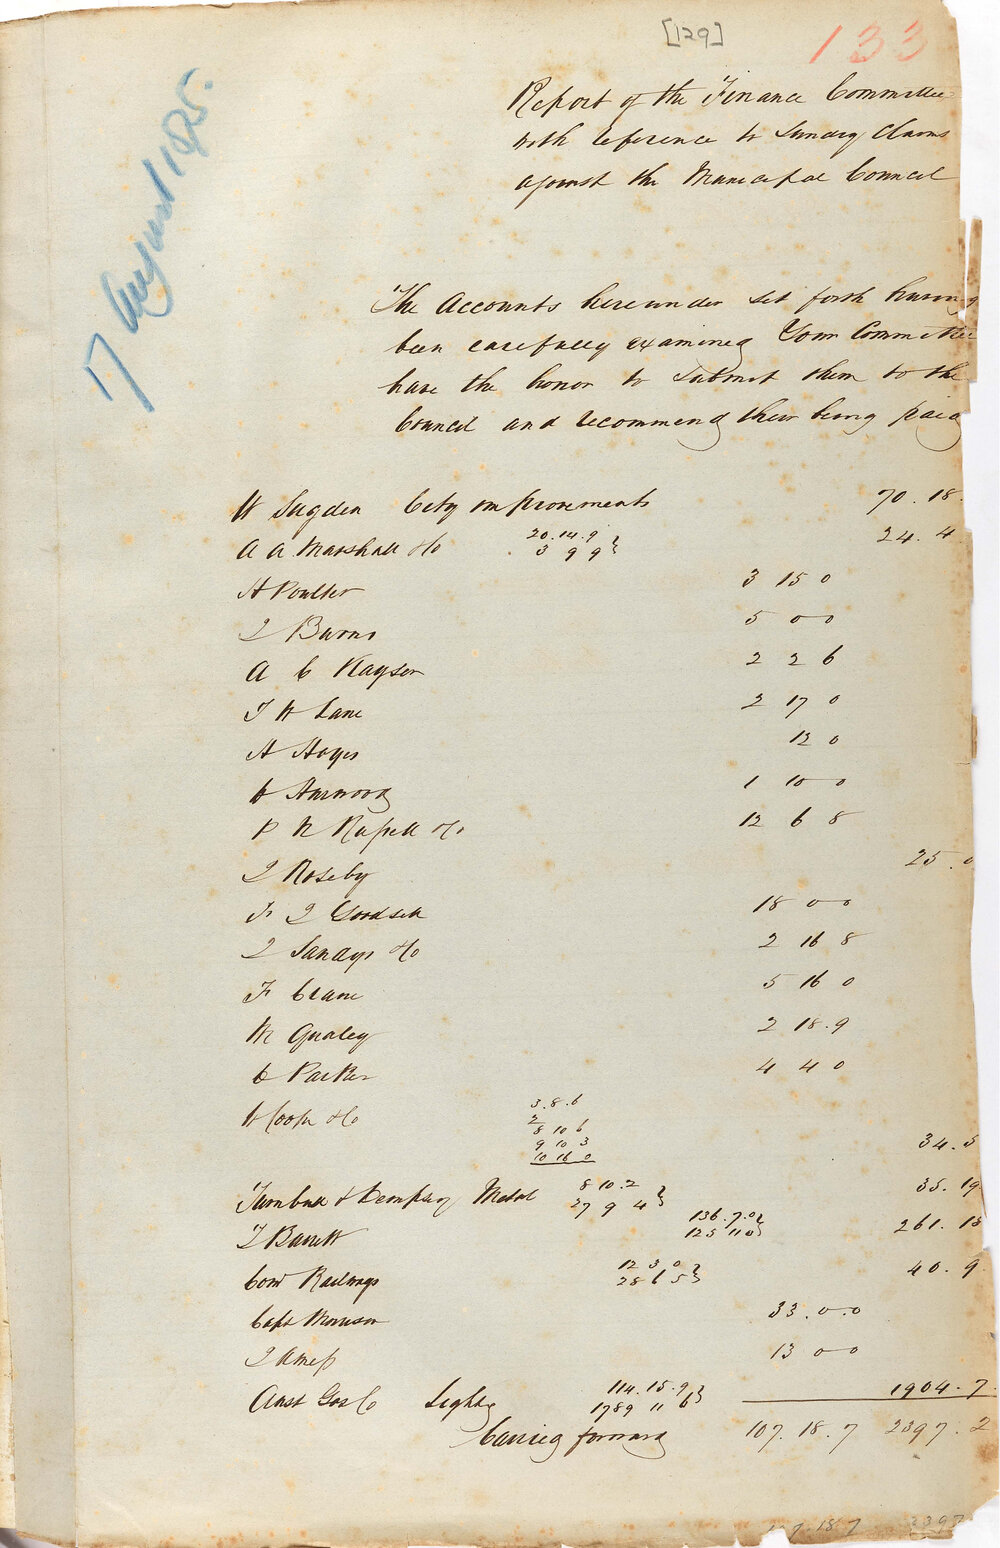 [129]
133
17 August 1875.
Report of the Finance Committee
with reference to Sundry Claims
against the Municipal Council
The Accounts hereunder set forth having
been carefully examined Your Committee
have the honor to submit them to the
Council and recommend their being paid
W Sugden City improvements 70. 18.
A A Marshall &Co 20.14.9 } 24. 4
3 9 9 }
H Poulter 3 15 0
J Burns 5 0 0
A C Kayser 2 2 6
J W Lane 2 17 0
A Hayes 12 0
W Harwood 1 10 0
P N Russell &Co 12 6 8
J Roseby 25. 0
F J Goodsell 18 0 0
J Sandys &Co 2 16 8
F Crane 5 16 0
M Qualey 2 18.9
C Parker 4 4 0
W Cook &Co 3.8.6
2
8 10 6
9 10 3
10 16 0 34. 5
Turnbull & Dempsey Metal 8 10.2 } 35. 19
27 9 4 }
T Barrett 136.7.0 } 261. 18
125 11 0 }
Com Railways 12 3 0 } 40. 9
28 6 5 }
Capt Morrison 33. 0.0
J Ames 13 0 0
Aust Gas Co Lightg 114.15.9 } 1904. 7.
1789 11 6 }
Carried forward 107. 18. 7 2397. 2
107.18.7 2397